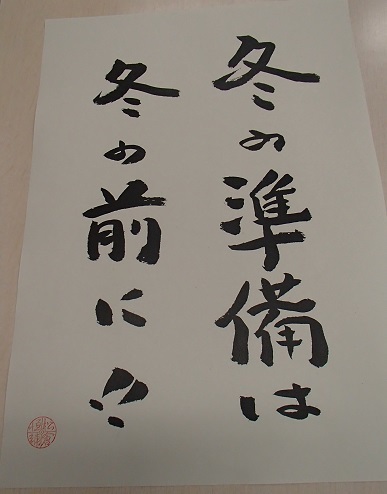 冬の準備は
冬の前に!!